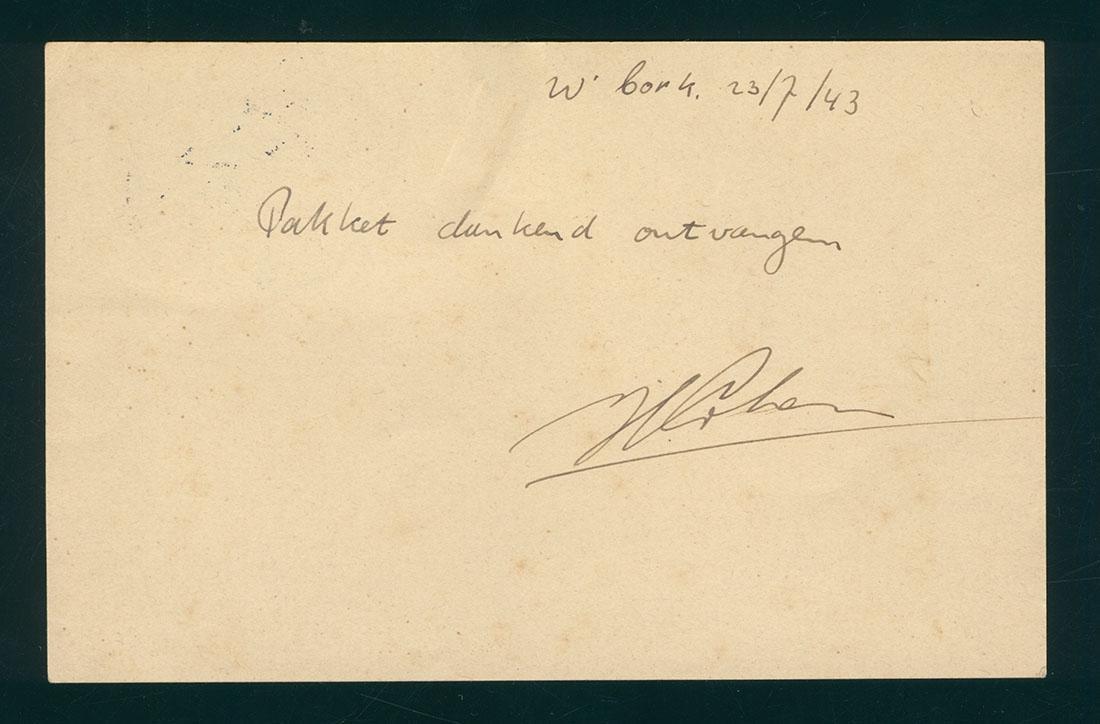 W'bork. 23/7/43
Pakket dankend ontvangen